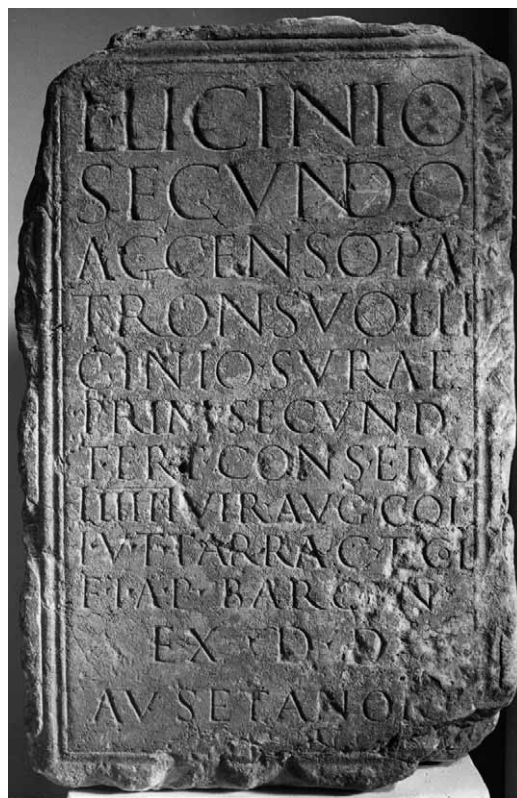 L LICINIO
SECVNDO
ACCENSO PA
TRON SVO L LI
CINIO SVRAE
PRIM SECVND
TERT CONSE IVS
IIIIII VIR AVG COL
I V T TARRAC ET COL
F I A P BARCIN
EX D D
AVSETANOR